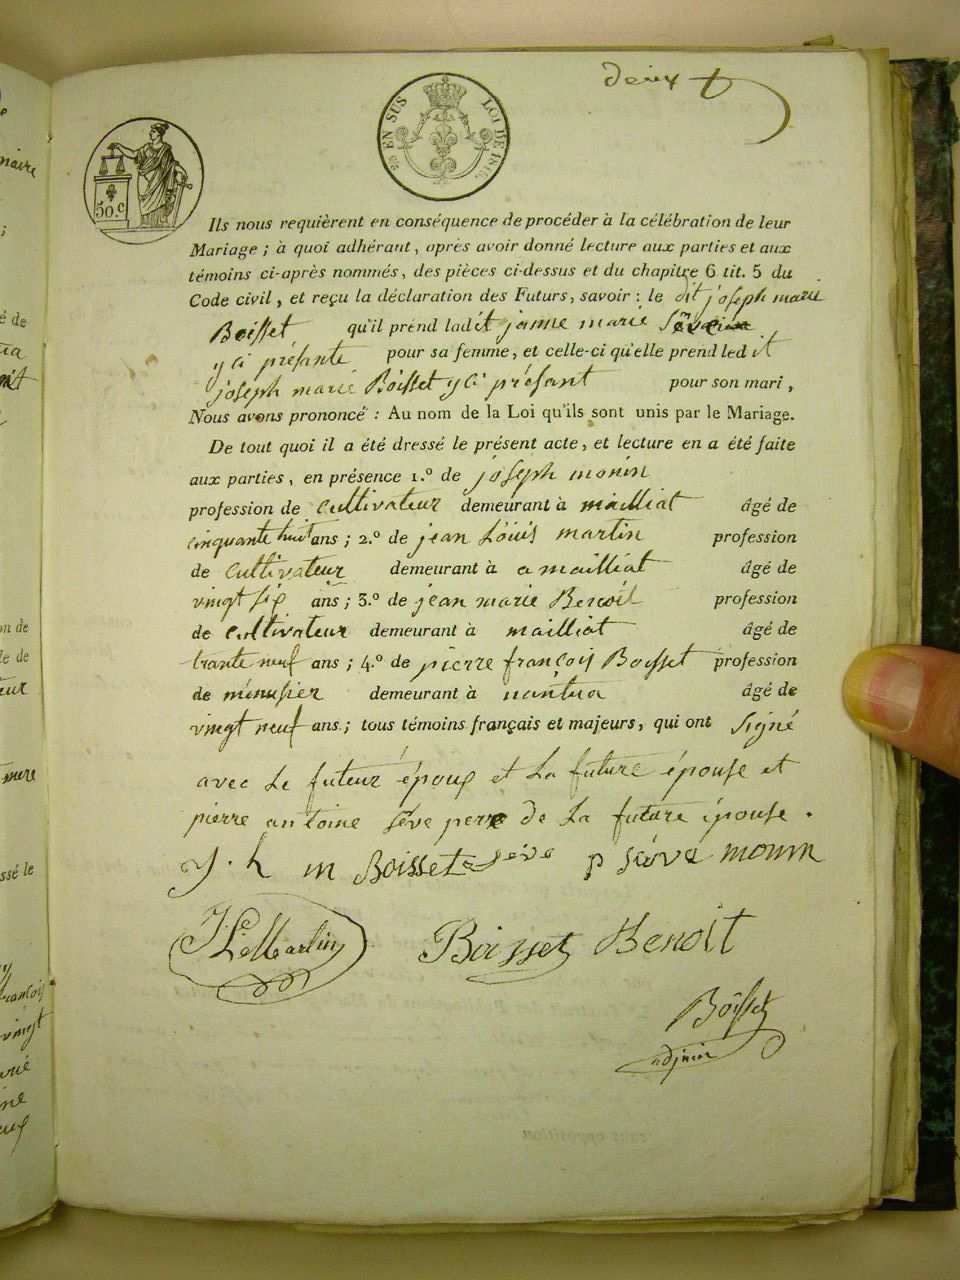 deux
25 EN SUS LOI DE 1816
50.c
Ils nous requièrent en conséquence de procéder à la célébration de leur
Mariage ; à quoi adhérant, après avoir donné lecture aux parties et aux
témoins ci-après nommés, des pièces ci-dessus et du chapitre 6 tit. 5 du
Code civil, et reçu la déclaration des Futurs, savoir : le dit joseph marie
Boisset qu'il prend ladit janne marie
y ci présante pour sa femme, et celle-ci qu'elle prend ledit
joseph marie Boisset y ci présant pour son mari,
Nous avons prononcé : Au nom de la Loi qu'ils sont unis par le Mariage.
De tout quoi il a été dressé le présent acte, et lecture en a été faite
aux parties, en présence 1.º de joseph monin
profession de cultivateur demeurant à mailliat âgé de
cinquante huit ans ; 2.º de jean Louis martin profession
de cultivateur demeurant à a mailliat âgé de
vingt six ans ; 3.º de jean marie Benoit profession
de cultivateur demeurant à mailliat âgé de
trante neuf ans ; 4.º de pierre françois Boisset profession
de menusier demeurant à nantua âgé de
vingt neuf ans ; tous témoins français et majeurs, qui ont signé
avec le futeur époux et la future épouse et
pierre antoine sêve perre de la future épouse .
j . h m Boisset sève p sève monin
JLe Martin Boisset Benoit
Boisset
adjoin
naire
é de
mere
ssé le
françois
vingt